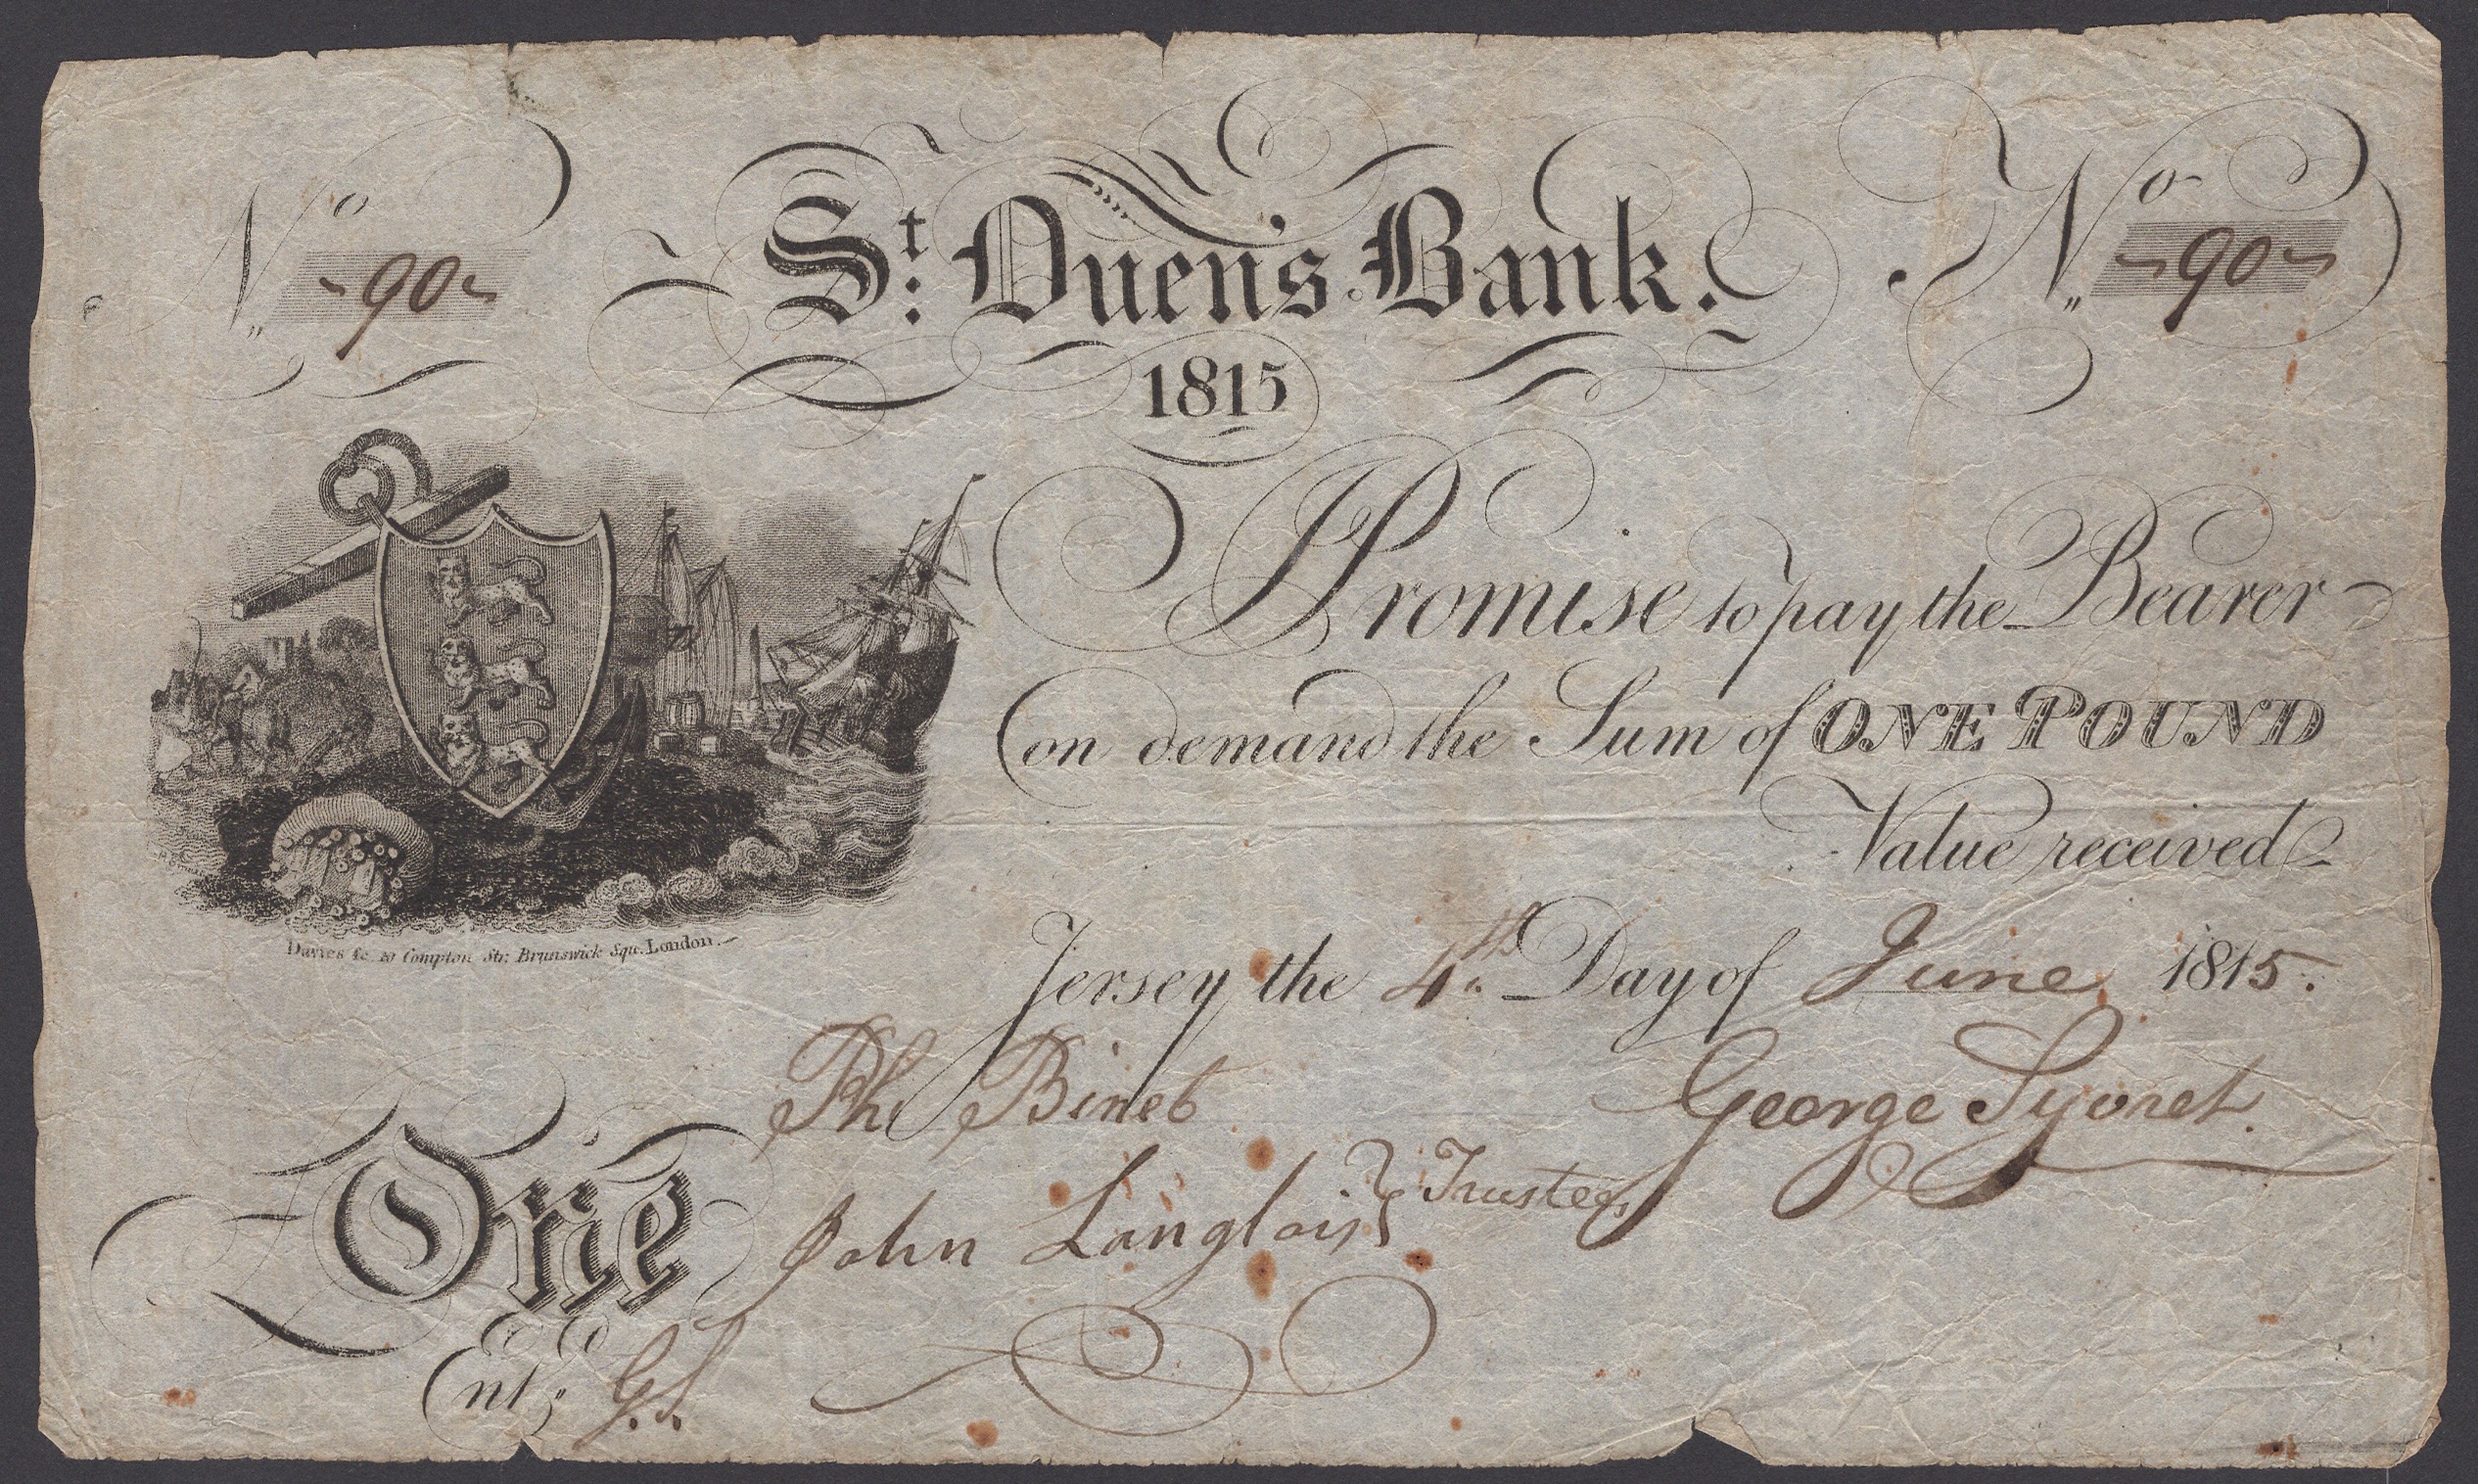 No 90 St. Ouen's Bank. No 90
1815
I Promise to pay the Bearer
on demand the Sum of ONE POUND
Value received
Davies &c. 10 Compton Str: Brunswick Squ. London.
Jersey the 4th. Day of June 1815.
Ph Binet George Syvret.
John Langlois } Trustees
One
Entd. G.S.